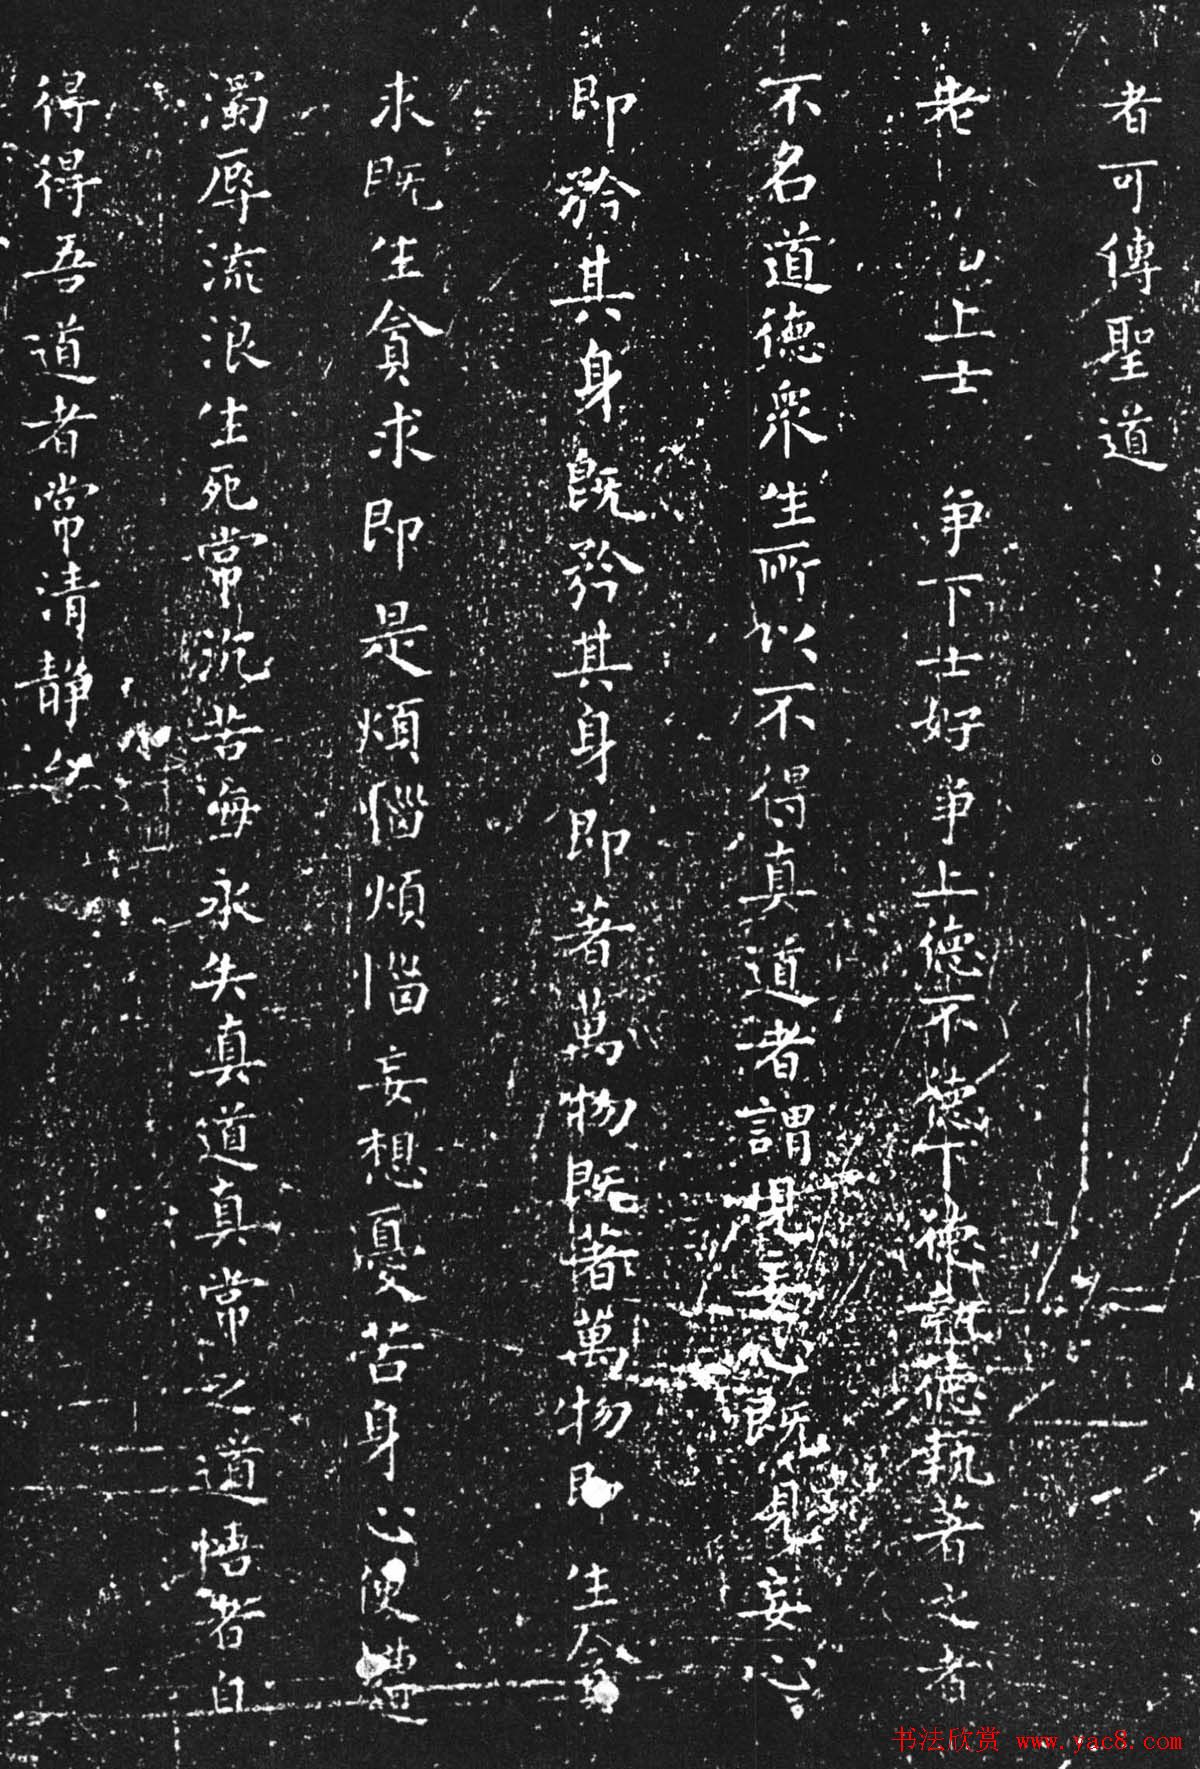 者可傳聖道
老上士爭下士好爭上德不德下德執德執著之者
不名道德衆生所以不得真道者謂妄心既見妄心
即矜其身既矜其身即著萬物既著萬物即生貪
求既生貪求即是煩惱煩惱妄想憂苦身心便遭
濁辱流浪生死常沉苦海永失真道真常之道悟者自
得得吾道者常清靜矣
书法欣赏 www.yac8.com